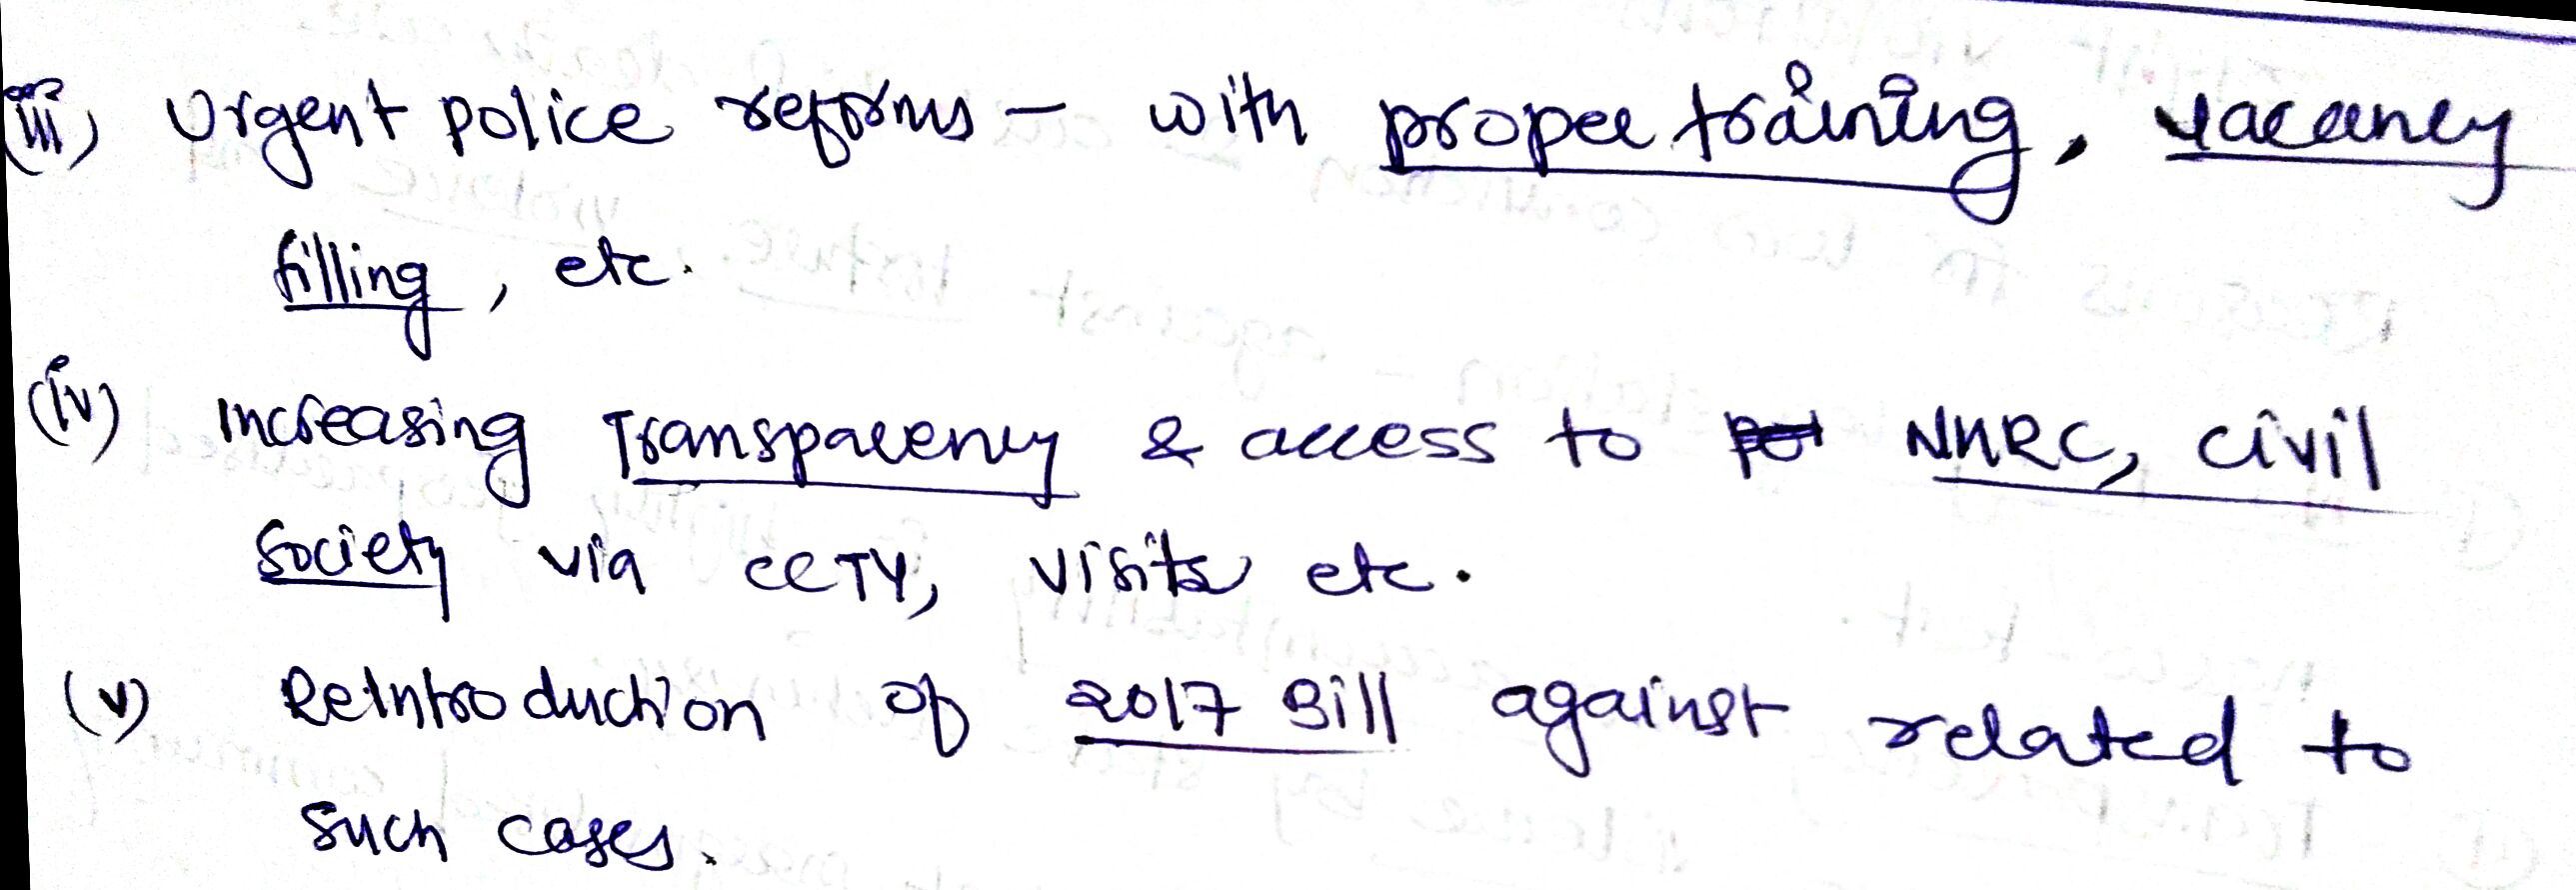 (iii) Urgent police reforms – with proper training, vacancy
filling, etc.
(iv) Increasing Transparency & access to NHRC, civil
society via CCTV, visits etc.
(v) Reintroduction of 2017 Bill against related to
such cases.